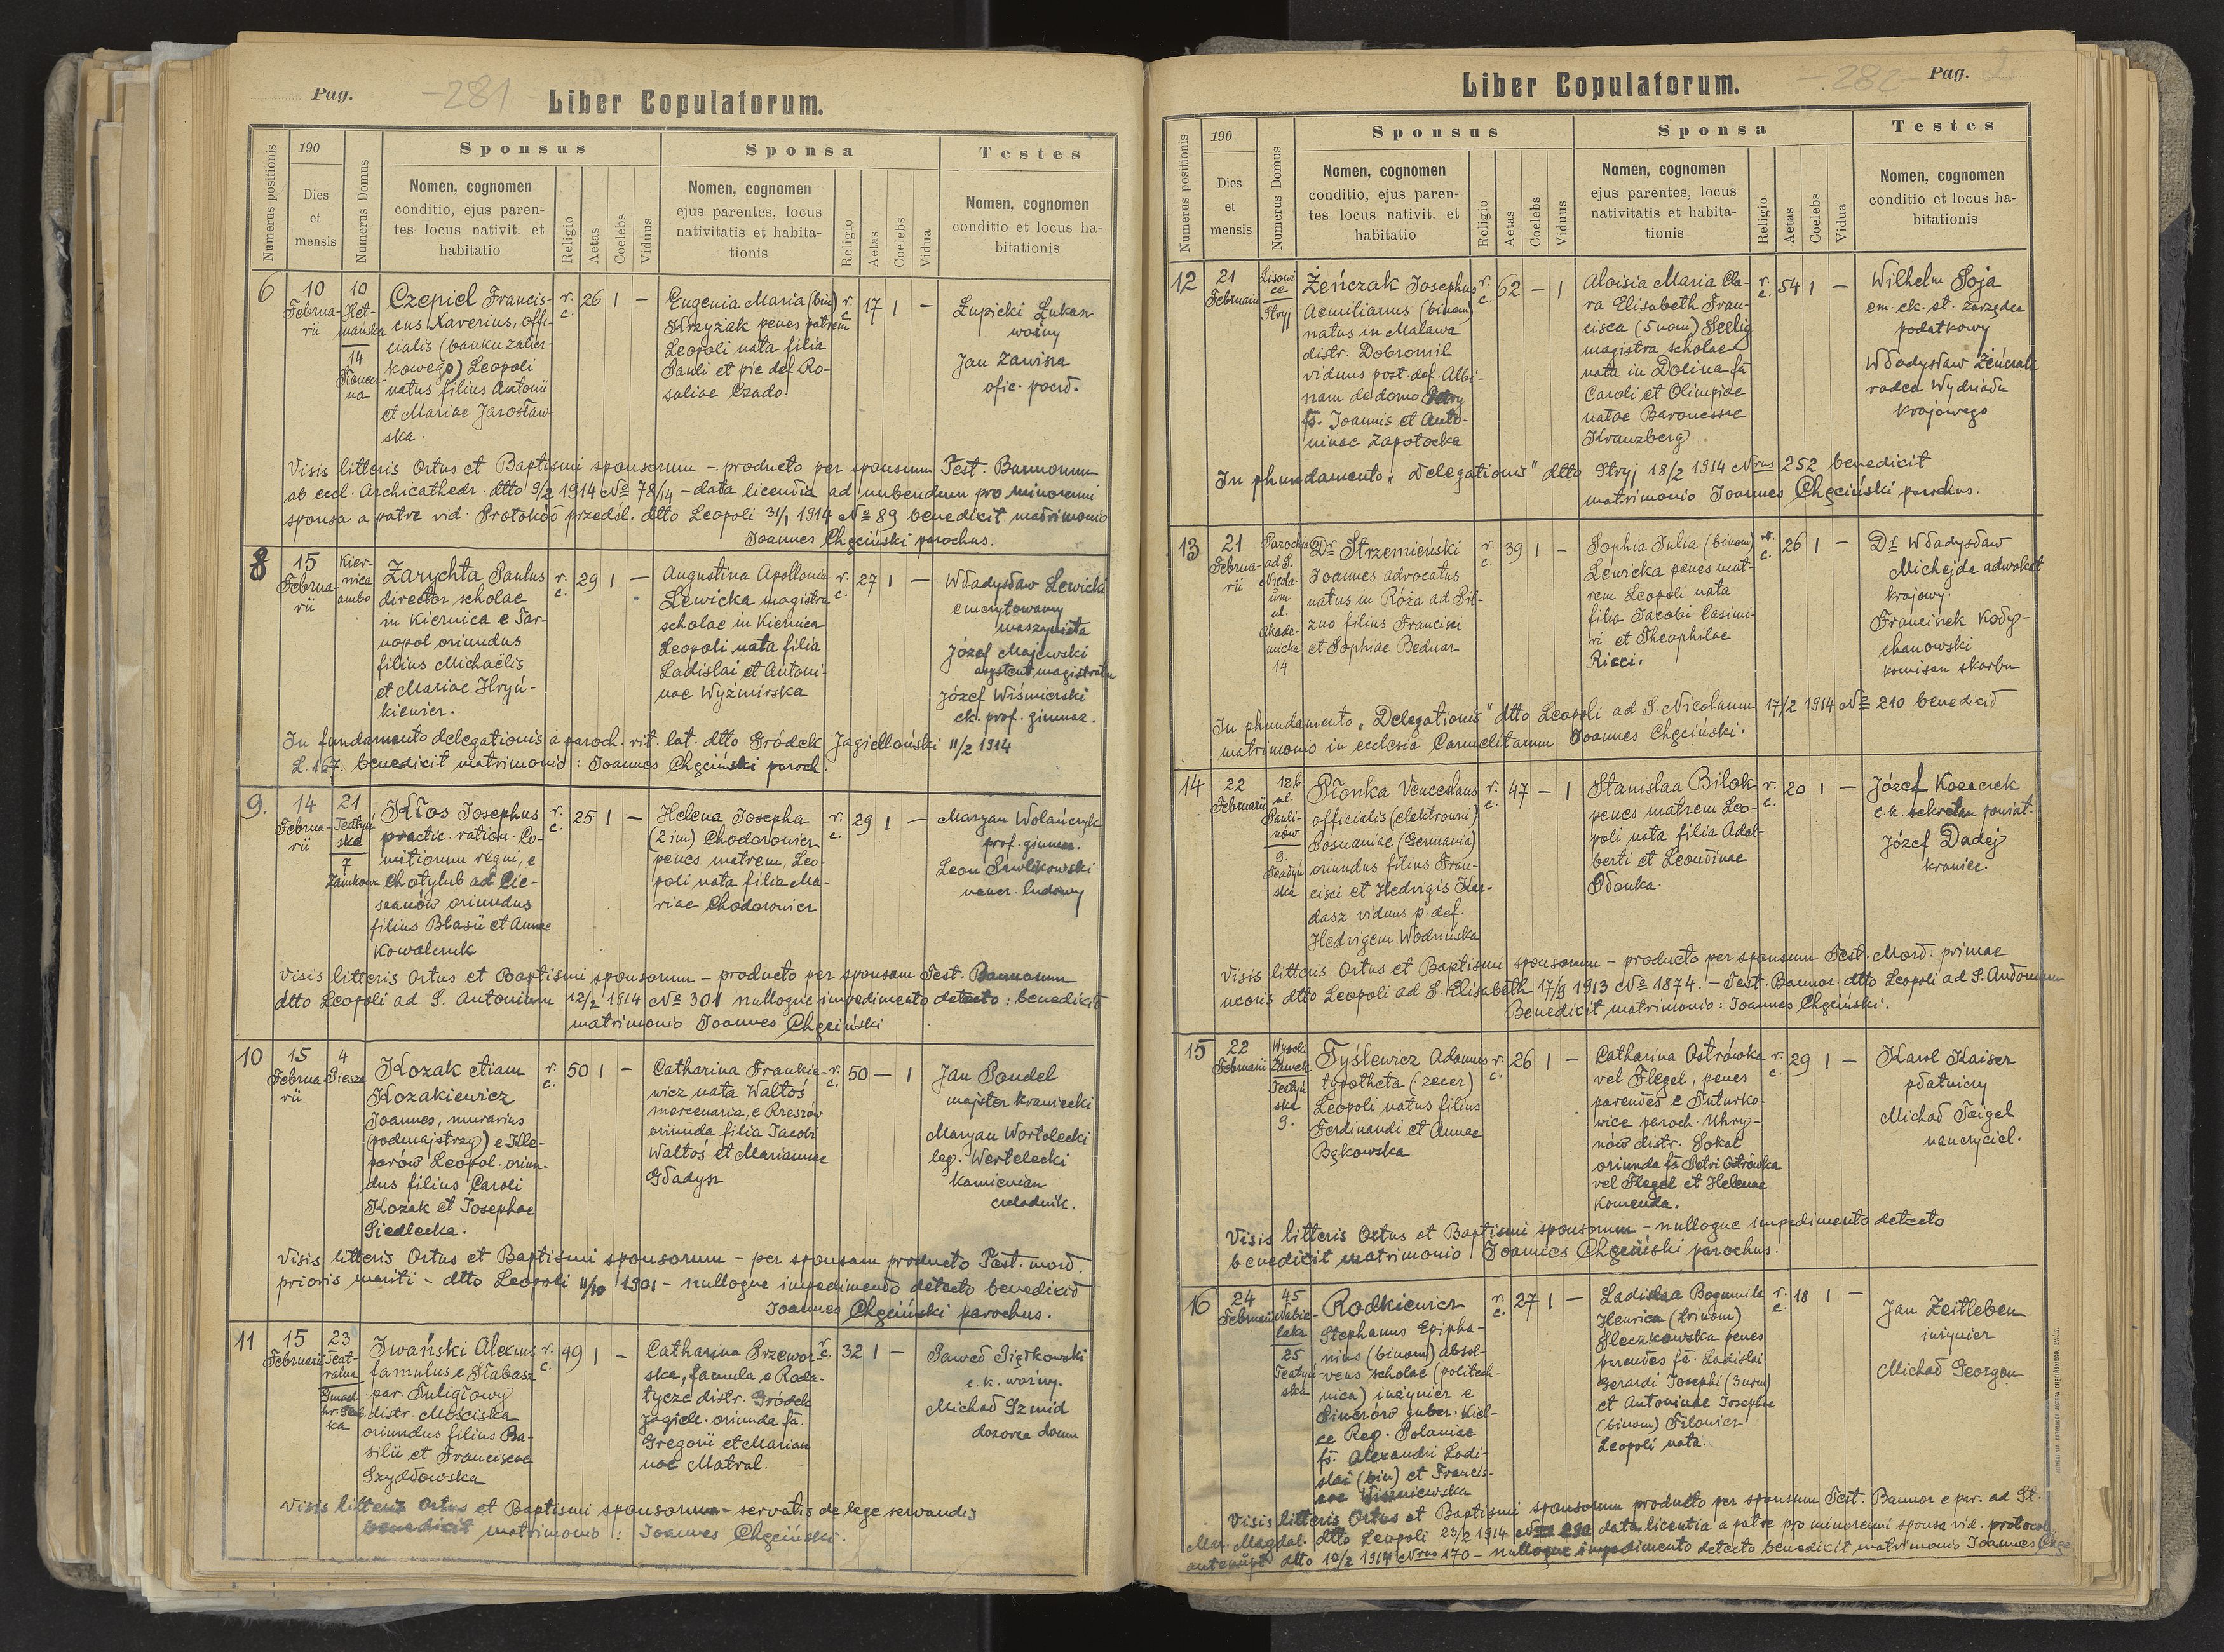 Pag.
-281
Liber Copulatorum.
Numerus positionis
190
Dies
et
mensis
Numerus Domus
Sponsus
Nomen, cognomen
conditio, ejus paren-
tes locus nativit. et
habitatio
Religio
Aetas
Coelebs
Viduus
Sponsa
Nomen, cognomen
ejus parentes, locus
nativitatis et habita-
tionis
Religio
Aetas
Coelebs
Vidua
Testes
Nomen, cognomen
conditio et locus ha-
bitationis
6
10
Februa-
rii
10
Het-
mańska
14
Czepiel Francis-
cus Xaverius, offi-
cialis (banku zalicz-
kowego) Leopoli
natus filius Antonii
et Mariae Jarosław-
ska.
r.
c.
26
1
–
Eugenia Maria (bin)
Krzyżak penes patrem
Leopoli nata filia
Pauli et pie def. Ro-
saliae Czado
r.
c.
17
1
–
Łupicki Łukasz
woźny
Jan Zawisza
ofic. poczt.
Visis litteris Ortus et Baptismi sponsorum – producto per sponsum Test. Bannorum
ab eccl. Archicathedr. dtto 9/2 1914 No 78/14 – data licentia ad nubendum pro minorenni
sponsa a patre vid. Protokół przedśl. dtto Leopoli 31/1 1914 No 89 benedicit matrimonio
Joannes Chęciński parochus.
8
15
Februa-
rii
Kier-
nica
ambo
Zarychta Paulus
director scholae
in Kiernica e Tar-
nopol oriundus
filius Michaëlis
et Mariae Hryń-
kiewicz.
r.
c.
29
1
–
Augustina Apollonia
Lewicka magistra
scholae in Kiernica
Leopoli nata filia
Ladislai et Antoni-
nae Wyżmirska
r.
c.
27
1
–
Władysław Lewicki
emerytowany
maszynista
Józef Majewski
asystent magistratu
Józef Wiśmierski
ck. prof. gimnaz.
In fundamento delegationis a paroch. rit. lat. dtto Gródek Jagielloński 11/2 1914
L. 167. benedicit matrimonio: Joannes Chęciński paroch.
9.
14
Februa-
rii
21
Teatyń
ska
7
Zamkowa
Kłos Josephus
practic. ration. Co-
mitiorum regni, e
Chotylub ad Cie-
szanów oriundus
filius Blasii et Annae
Kowalczuk
r.
c.
25
1
–
Helena Josepha
(2 im) Chodorowicz
penes matrem, Leo-
poli nata filia Ma-
riae Chodorowicz
r.
c.
29
1
–
Maryan Wolańczyk
prof. gimnaz.
Leon Pawlikowski
naucz. ludowy
Visis litteris Ortus et Baptismi sponsorum – producto per sponsam Test. Bannorum
dtto Leopoli ad S. Antonium 12/2 1914 No 301 nulloque impedimento detecto: benedicit
matrimonio Joannes Chęciński
10
15
Februa-
rii
4
Piesza
Kozak etiam
Kozakiewicz
Joannes, murarius
(podmajstrzy) e Kle-
parów Leopol. oriun-
dus filius Caroli
Kozak et Josephae
Siedlecka.
r.
c.
50
1
–
Catharina Frankie-
wicz nata Waltoś
mercenaria, e Rzeszów
oriunda filia Jacobi
Waltoś et Mariannae
Gładysz
r.
c.
50
–
1
Jan Pondel
majster krawiecki
Maryan Wortolecki
leg. Wertelecki
kamienian
czeladnik.
Visis litteris Ortus et Baptismi sponsorum – per sponsam producto Test. mort.
prioris mariti – dtto Leopoli 11/10 1901 – nulloque impedimento detecto benedicit
Joannes Chęciński parochus.
11
15
Februarii
23
Teat-
ralna
Iwański Alexius
famulus e Słabasz
par. Tuligłowy
distr. Mościska
oriundus filius Ba-
silii et Franciscae
Szydłowska
r.
c.
49
1
–
Catharina Przewor-
ska, famula e Roda-
tycze distr. Gródek
Jagiell. oriunda fa.
Gregorii et Marian
nae Matral.
r.
c.
32
1
–
Paweł Piątkowski
c. k. woźny.
Michał Szmid
dozorca domu
Visis litteris Ortus et Baptismi sponsorum – servatis de lege servandis
benedicit matrimonio: Joannes Chęciński.
Liber Copulatorum.
-282-
Pag.
2
Numerus positionis
190
Dies
et
mensis
Numerus Domus
Sponsus
Nomen, cognomen
conditio, ejus paren-
tes locus nativit. et
habitatio
Religio
Aetas
Coelebs
Viduus
Sponsa
Nomen, cognomen
ejus parentes, locus
nativitatis et habita-
tionis
Religio
Aetas
Coelebs
Vidua
Testes
Nomen, cognomen
conditio et locus ha-
bitationis
12
21
Februarii
Lisowi
ce
Stryj
Żeńczak Josephus
Aemilianus (binom)
natus in Malawa
distr. Dobromil
viduus post. def. Albi-
nam de domo Petry
fs. Joannis et Anto-
ninae Zapotocka
r.
c.
62
–
1
Aloisia Maria Cla-
ra Elisabeth Fran-
cisca (5 nom) Seelig
magistra scholae
nata in Dolina fa
Caroli et Olimpiae
natae Baronessae
Kranzberg
r.
c.
54
1
–
Wilhelm Soja
em. ck. st. zarządca
podatkowy
Władysław Żeńczak
radca Wydziału
krajowego
In phundamento "Delegationis" dtto Stryj 18/2 1914 Nrus 252 benedicit
matrimonio Joannes Chęciński parochus.
13
21
Februa-
rii
Parochia
ad S.
Nicola-
um
ul.
Akade-
micka
14
Dr Strzemieński
Joannes advocatus
natus in Róża ad Pil-
zno filius Francisci
et Sophiae Bednarz
r.
c.
39
1
–
Sophia Julia (binom)
Lewicka penes mat-
rem Leopoli nata
filia Jacobi Casimi-
ri et Theophilae
Ricci.
r.
c.
26
1
–
Dr Władysław
Michejda adwokat
krajowy.
Franciszek Kody-
chanowski
komisarz skarbu
In phundamento "Delegationis" dtto Leopoli ad S. Nicolaum 17/2 1914 No 210 benedicit
matrimonio in ecclesia Carmelitarum Joannes Chęciński.
14
22
Februarii
12b
ul.
Pauli-
nów
9.
Teatyń
ska
Płonka Venceslaus
officialis (elektrowni)
Posnaniae (Germania)
oriundus filius Fran-
cisci et Hedvigis Kar-
dasz viduus p. def.
Hedvigem Wodzińska
r.
c.
47
–
1
Stanislaa Bilok
penes matrem Leo-
poli nata filia Adal-
berti et Leontinae
Płonka.
r.
c.
20
1
–
Józef Kozaczek
c. k. sekretarz powiat.
Józef Dadej
krawiec.
Visis litteris Ortus et Baptismi sponsorum – producto per sponsum Test. Mort. primae
uxoris dtto Leopoli ad S. Elisabeth 17/9 1913 No 1874. – Test. Bannor. dtto Leopoli ad S. Antonium
Benedicit matrimonio: Joannes Chęciński.
15
22
Februarii
Wysoki
Zamek
Teatyń
ska
9.
Tyślewicz Adamus
typotheta (: zecer)
Leopoli natus filius
Ferdinandi et Annae
Bąkowska
r.
c.
26
1
–
Catharina Ostrówka
vel Flegel, penes
parentes e Tuturko-
wice paroch. Uhry-
nów distr. Sokal
oriunda fa Petri Ostrówka
vel Flegel et Helenae
Komenda.
r.
c.
29
1
–
Karol Kaiser
płatniczy
Michał Feigel
nauczyciel.
Visis litteris Ortus et Baptismi sponsorum – nulloque impedimento detecto
benedicit matrimonio Joannes Chęciński parochus.
16
24
Februarii
45
Nabie-
laka
25
Teatyń
ska
Rodkiewicz
Stephanus Epipha-
nius (binom) absol-
vens scholae (politech-
nica) inżynier e
Pinczów guber. Kiel-
ce Reg. Polaniae
fs. Alexandri Ladi-
slai (bin) et Francis-
cae Wiszniewska
r.
c.
27
1
–
Ladislaa Bogumila
Henrica (trinom)
Sleczkowska penes
parentes fa. Ladislai
Gerardi Josephi (3 nom)
et Antoninae Josephae
(binom) Filowicz
Leopoli nata.
r.
c.
18
1
–
Jan Zeitleben
inżynier
Michał Georgon
Visis litteris Ortus et Baptismi sponsorum producto per sponsum Test. Bannor e par. ad St.
Mar. Magdal. dtto Leopoli 23/2 1914 Nrus 290 data licentia a patre pro minorenni sponsa vid. protocol
antenupt dtto 10/2 1914 Nrus 170 – nulloque impedimento detecto benedicit matrimonio Joannes Chęc